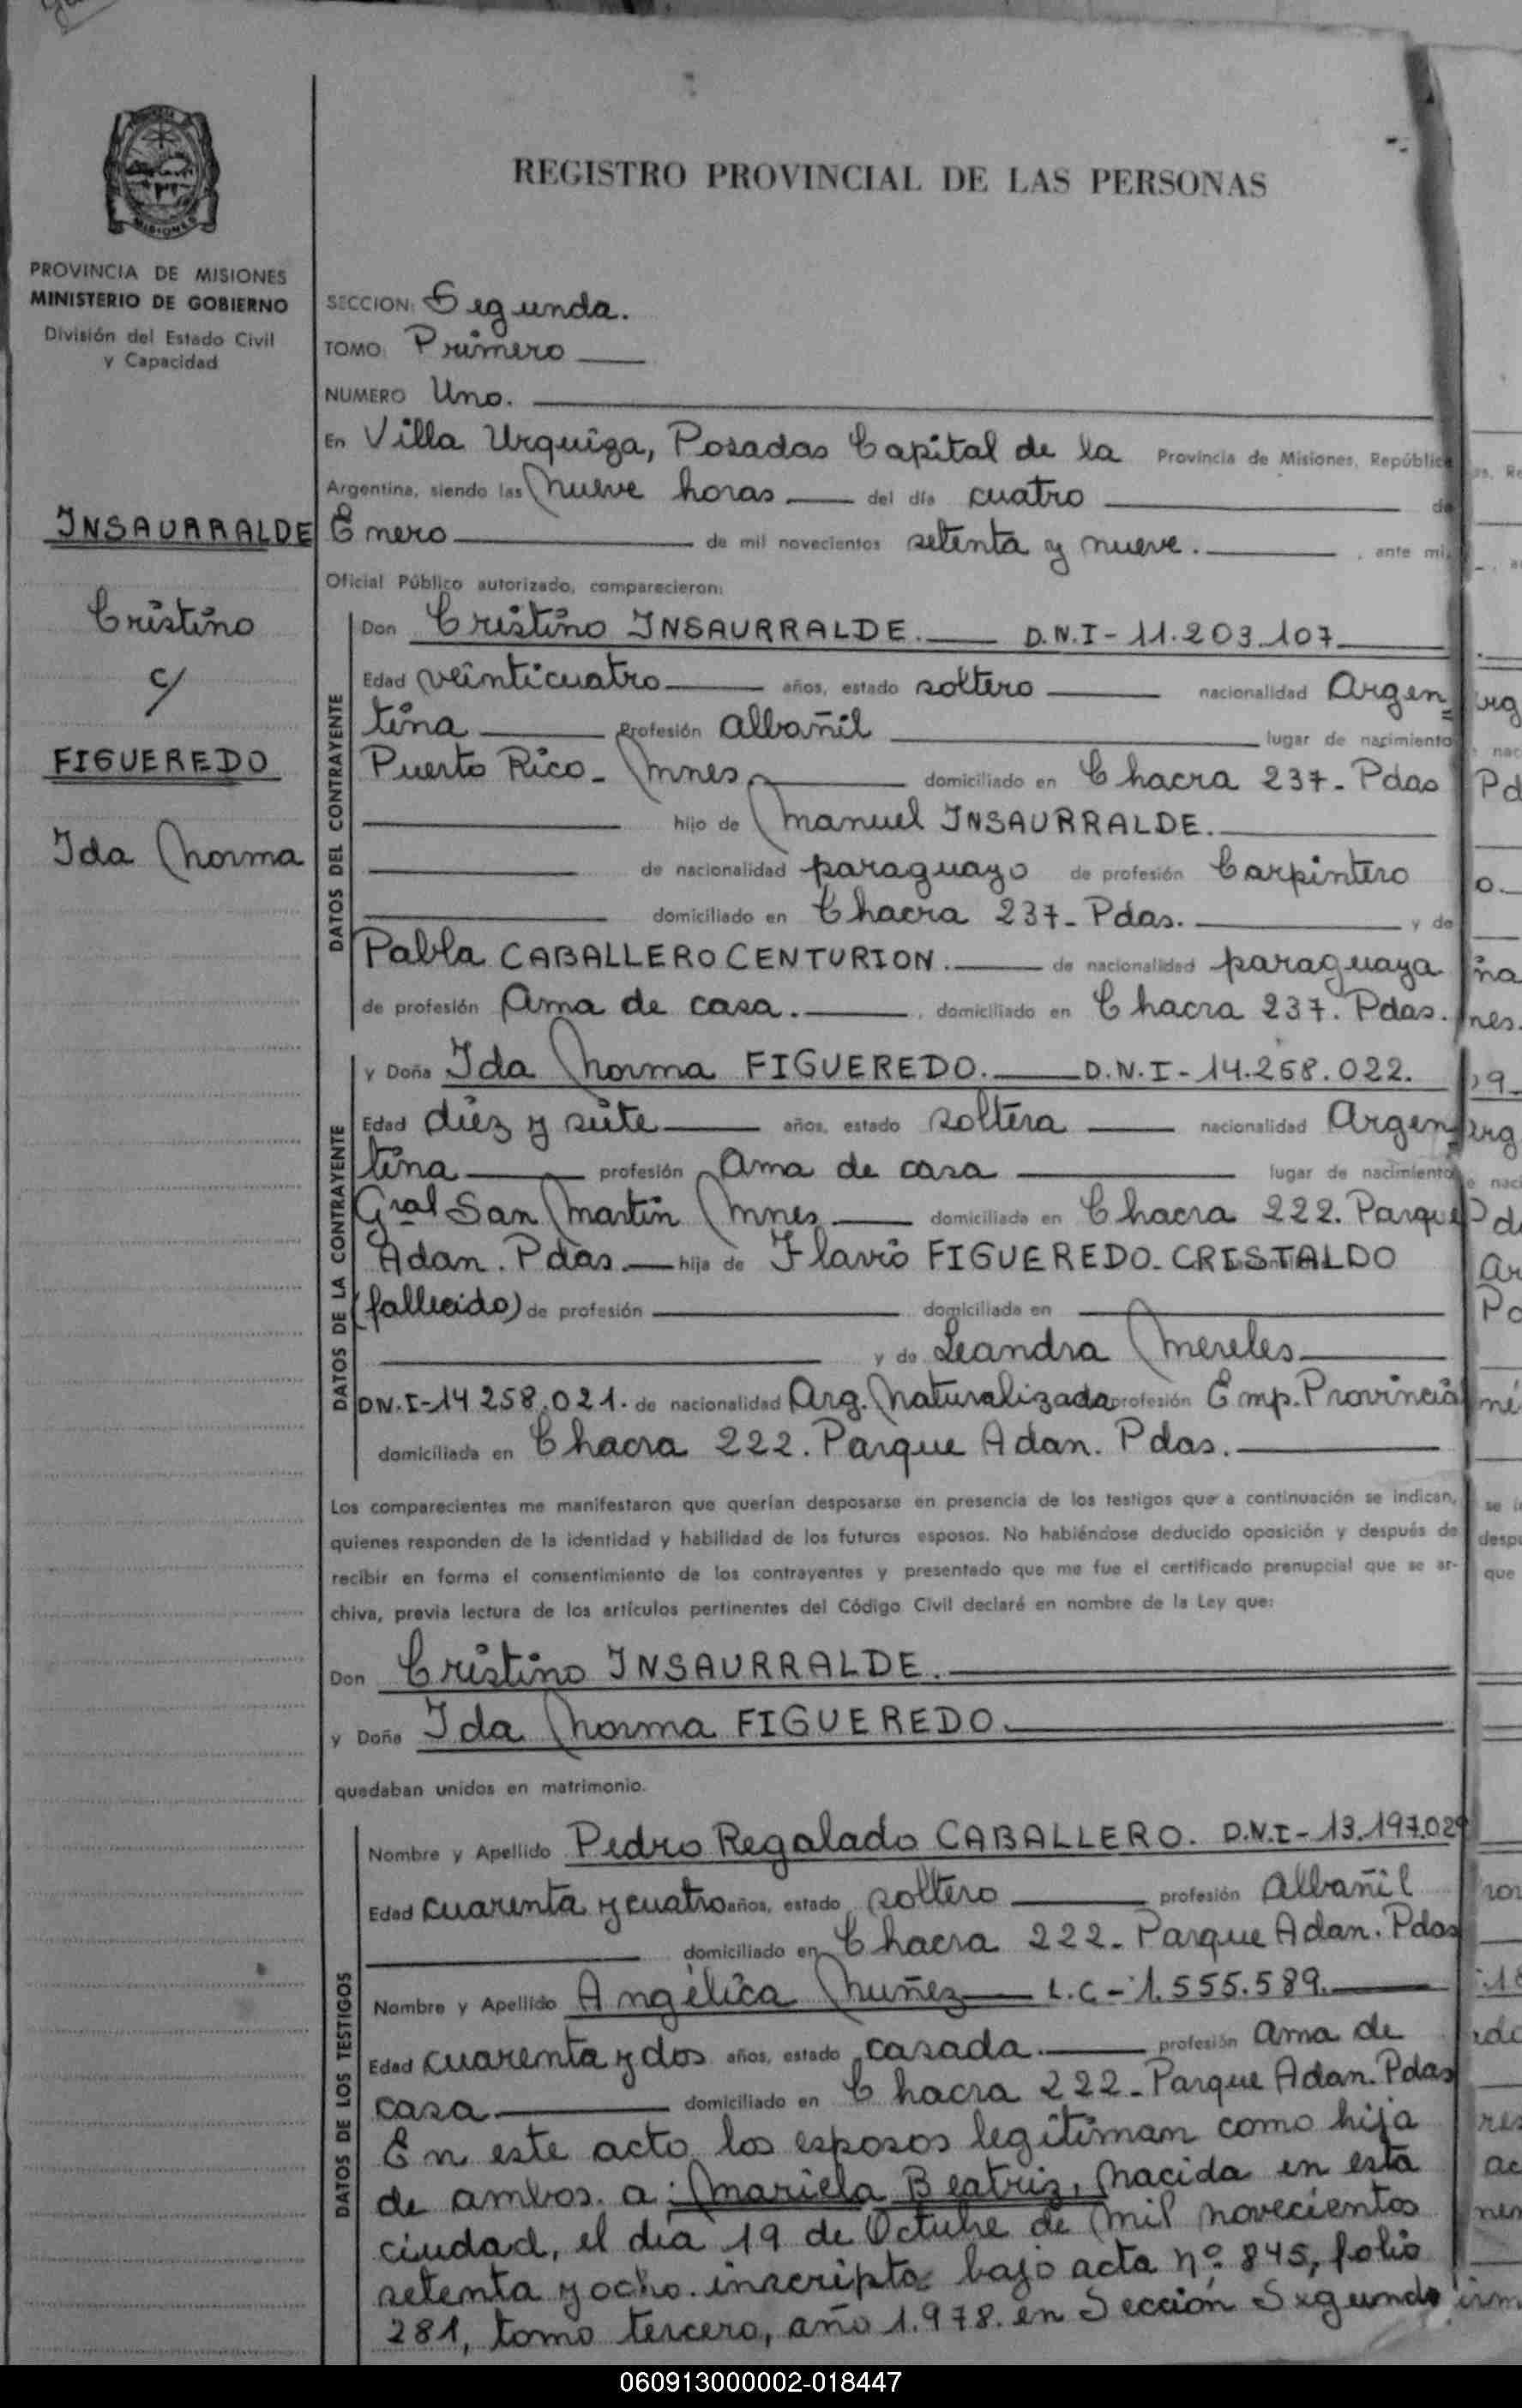 MISIONES
PROVINCIA DE MISIONES
MINISTERIO DE GOBIERNO
División del Estado Civil
y Capacidad
INSAURRALDE
Cristino
c/
FIGUEREDO
Ida Norma
REGISTRO PROVINCIAL DE LAS PERSONAS
SECCION: Segunda.
TOMO: Primero
NUMERO Uno.
En Villa Urquiza, Posadas Capital de la Provincia de Misiones, República
Argentina, siendo las Nueve horas del día cuatro de
Enero de mil novecientos setenta y nueve. , ante mi,
Oficial Público autorizado, comparecieron:
DATOS DEL CONTRAYENTE
Don Cristino INSAURRALDE. D.N.I-11.203.107
Edad veinticuatro años, estado soltero nacionalidad Argen=
tina Profesión albañil lugar de nacimiento
Puerto Rico- Mnes domiciliado en Chacra 237- Pdas
hijo de Manuel INSAURRALDE.
de nacionalidad paraguayo de profesión Carpintero
domiciliado en Chacra 237- Pdas. y de
Pabla CABALLERO CENTURION. de nacionalidad paraguaya
de profesión Ama de casa. , domiciliado en Chacra 237. Pdas.
DATOS DE LA CONTRAYENTE
y Doña Ida Norma FIGUEREDO. D.N.I-14.258.022.
Edad diez y siete años, estado soltera nacionalidad Argen=
tina profesión Ama de casa lugar de nacimiento
Gral San Martin Mnes domiciliada en Chacra 222. Parque
Adan. Pdas. hija de Flavio FIGUEREDO-CRISTALDO
(fallecido) de profesión domiciliada en
y de Leandra Mereles
DN.I-14 258.021. de nacionalidad Arg. Naturalizada profesión Emp. Provincial
domiciliada en Chacra 222. Parque Adan. Pdas.
Los comparecientes me manifestaron que querían desposarse en presencia de los testigos que a continuación se indican,
quienes responden de la identidad y habilidad de los futuros esposos. No habiéndose deducido oposición y después de
recibir en forma el consentimiento de los contrayentes y presentado que me fue el certificado prenupcial que se ar-
chiva, previa lectura de los artículos pertinentes del Código Civil declaré en nombre de la Ley que:
Don Cristino INSAURRALDE.
y Doña Ida Norma FIGUEREDO.
quedaban unidos en matrimonio.
DATOS DE LOS TESTIGOS
Nombre y Apellido Pedro Regalado CABALLERO. D.N.I-13.197.029
Edad cuarenta y cuatro años, estado soltero profesión Albañil
domiciliado en Chacra 222- Parque Adan. Pdas
Nombre y Apellido Angélica Nuñez L.C-1.555.589.
Edad cuarenta y dos años, estado casada. profesión ama de
casa domiciliado en Chacra 222- Parque Adan. Pdas
En este acto los esposos legitiman como hija
de ambos. a: Mariela Beatriz, Nacida en esta
ciudad, el dia 19 de Octubre de Mil Novecientos
setenta y ocho. inscripta bajo acta nº 845, folio
281, tomo tercero, año 1.978. en Sección Segunda
060913000002-018447